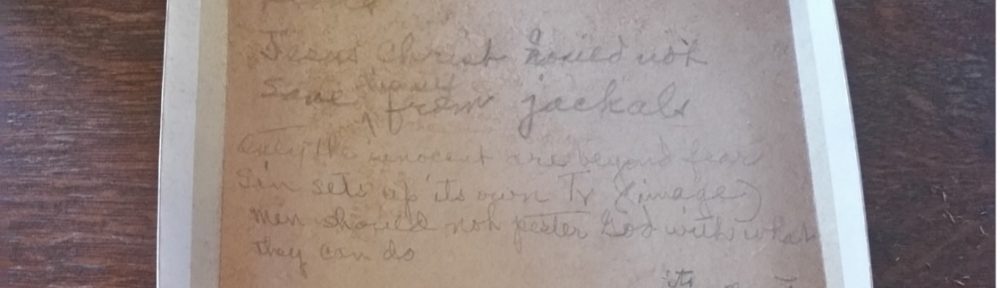 Jesus Christ could not
save from jackals
Only the innocent are beyond fear
Sin sets up its own TV (image)
Men should not pester God with what
they can do